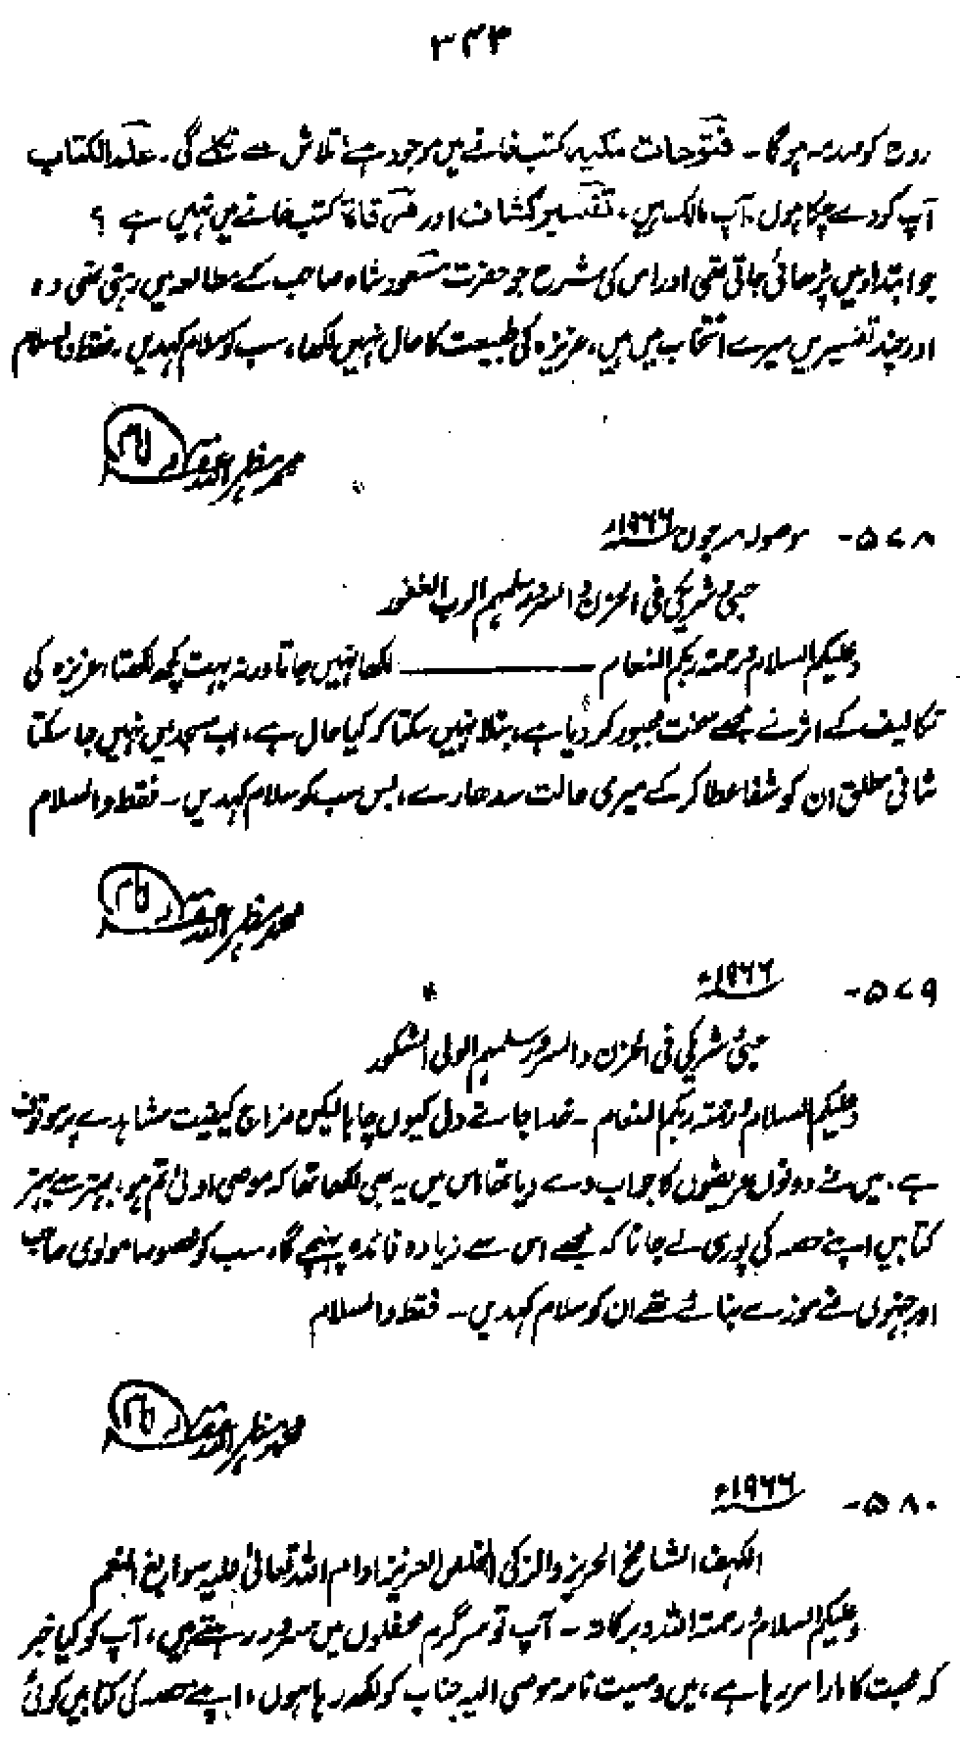 ۳۴۴
روح کو صدمہ ہوگا ۔ فتوحات مکیہ کتب خانے میں موجود ہے تلاش سے نکلے گی ۔ علم الکتاب
آپ کو دے چکا ہوں، آپ مالک ہیں، تفسیر کشاف اور مرقاۃ کتب خانے میں نہیں ہے ؟
جو ابتداء میں پڑھائی جاتی تھی اور اس کی شرح جو حضرت مسعود شاہ صاحب کے مطالعہ میں رہتی تھی وہ
اور چند تفسیریں میرے انتخاب میں ہیں، عزیزہ کی طبیعت کا حال نہیں لکھا، سب کو سلام کہدیں ۔ فقط والسلام
محمد مظہر اللہ
۵۷۸- موصولہ جون ۱۹۶۶ء
حبی و شریکی فی الحزن والسرور سلمہم الرب الغفور
وعلیکم السلام و رحمۃ ربکم المنعام ــــــ لکھا نہیں جاتا ورنہ بہت کچھ لکھتا، عزیزہ کی
تکالیف کے اثر نے مجھے سخت مجبور کر دیا ہے، بتلا نہیں سکتا کہ کیا حال ہے، اب مسجد میں نہیں جا سکتا
شافی مطلق ان کو شفا عطا کر کے میری حالت سدھارے، بس سب کو سلام کہدیں ۔ فقط والسلام
محمد مظہر اللہ
۵۷۹- ۱۹۶۶ء
حبی شریکی فی الحزن والسرور سلمہم الولی الشکور
وعلیکم السلام و رحمۃ ربکم المنعام ۔ خدا جانے دل کیوں چاہا لیکن مزاج کیفیت مشاہدے پر موقوف
ہے، میں نے دونوں عریضوں کا جواب دے دیا تھا اس میں یہ بھی لکھا تھا کہ موصی اولیٰ تم ہو، بہتر سے بہتر
کتابیں اپنے حصہ کی پوری لے جانا کہ مجھے اس سے زیادہ فائدہ پہنچے گا، سب کو خصوصا مولوی صاحب
اور جنہوں نے موزے بنائے تھے ان کو سلام کہدیں ۔ فقط والسلام
محمد مظہر اللہ
۵۸۰- ۱۹۶۶ء
الکہف الشامخ الحریز والزکی المخلص العزیز ادام اللہ تعالیٰ علیہ سوابغ النعم
وعلیکم السلام و رحمۃ اللہ وبرکاتہ ۔ آپ تو سرگرم محفلوں میں مسرور رہتے ہیں، آپ کو کیا خبر
کہ محبت کا مارا مر رہا ہے، میں وصیت نامہ موصی الیہ جناب کو لکھ رہا ہوں، اپنے حصہ کی کتابیں کوئی